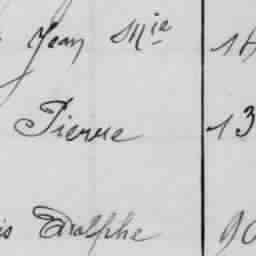 Jean Mie
Pierre 13
Adolphe 90